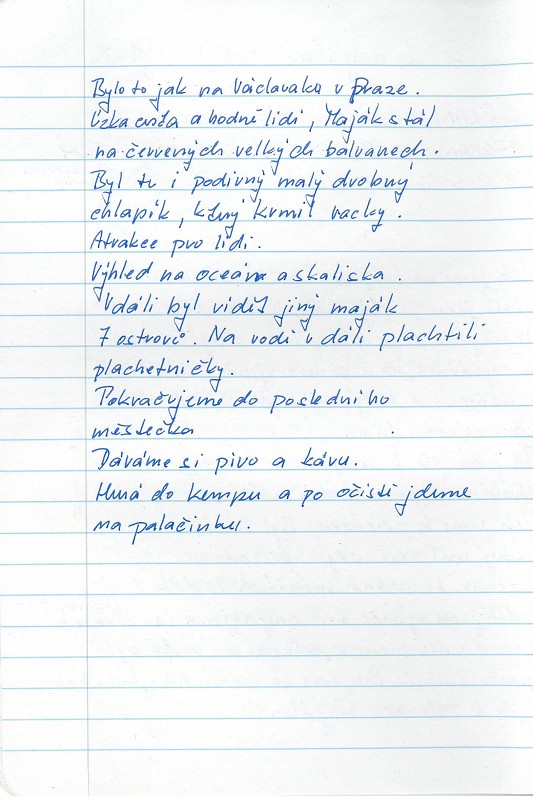 Bylo to jak na Václaváku v Praze.
Úzka cesta a hodně lidí, Maják stál
na červených velkých balvanech.
Byl tu i podivný malý drobný
chlapík, který krmil racky.
Atrakce pro lidi.
Výhled na oceán a skaliska.
V dáli byl vidět jiný maják
7 ostrovů. Na vodě v dáli plachtili
plachetničky.
Pokračujeme do posledního
městečka
Dáváme si pivo a kávu.
Hurá do kempu a po očistě jdeme
na palačinku.